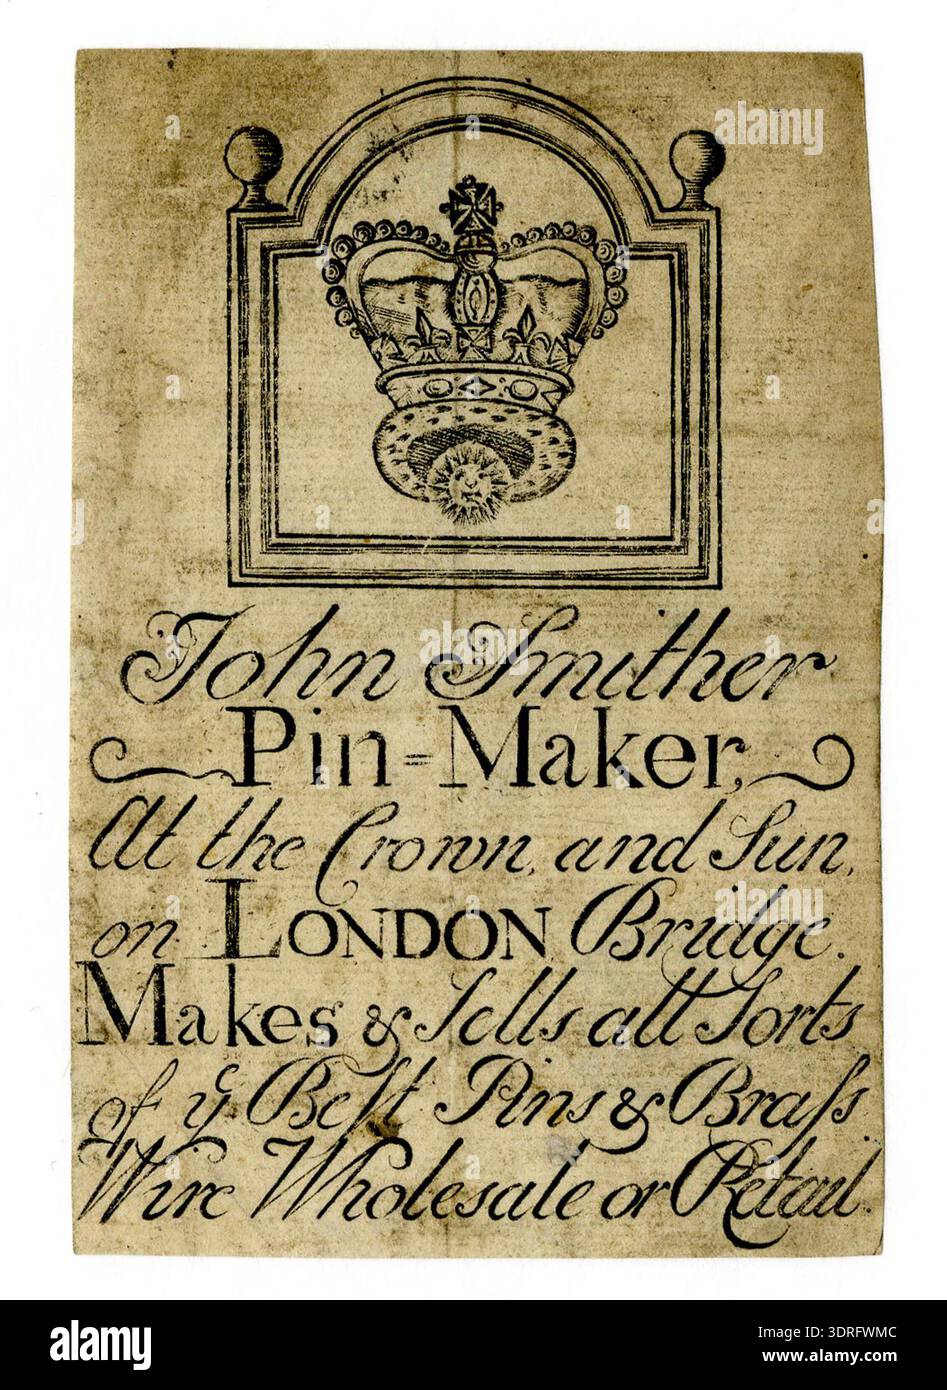 John Smither
Pin=Maker,
At the Crown, and Sun,
on LONDON Bridge.
Makes & Sells all Sorts
of yͤ Beſt Pins & Braſs
Wire Wholesale or Retail.
alamy
Image ID: 3DRFWMC
www.alamy.com